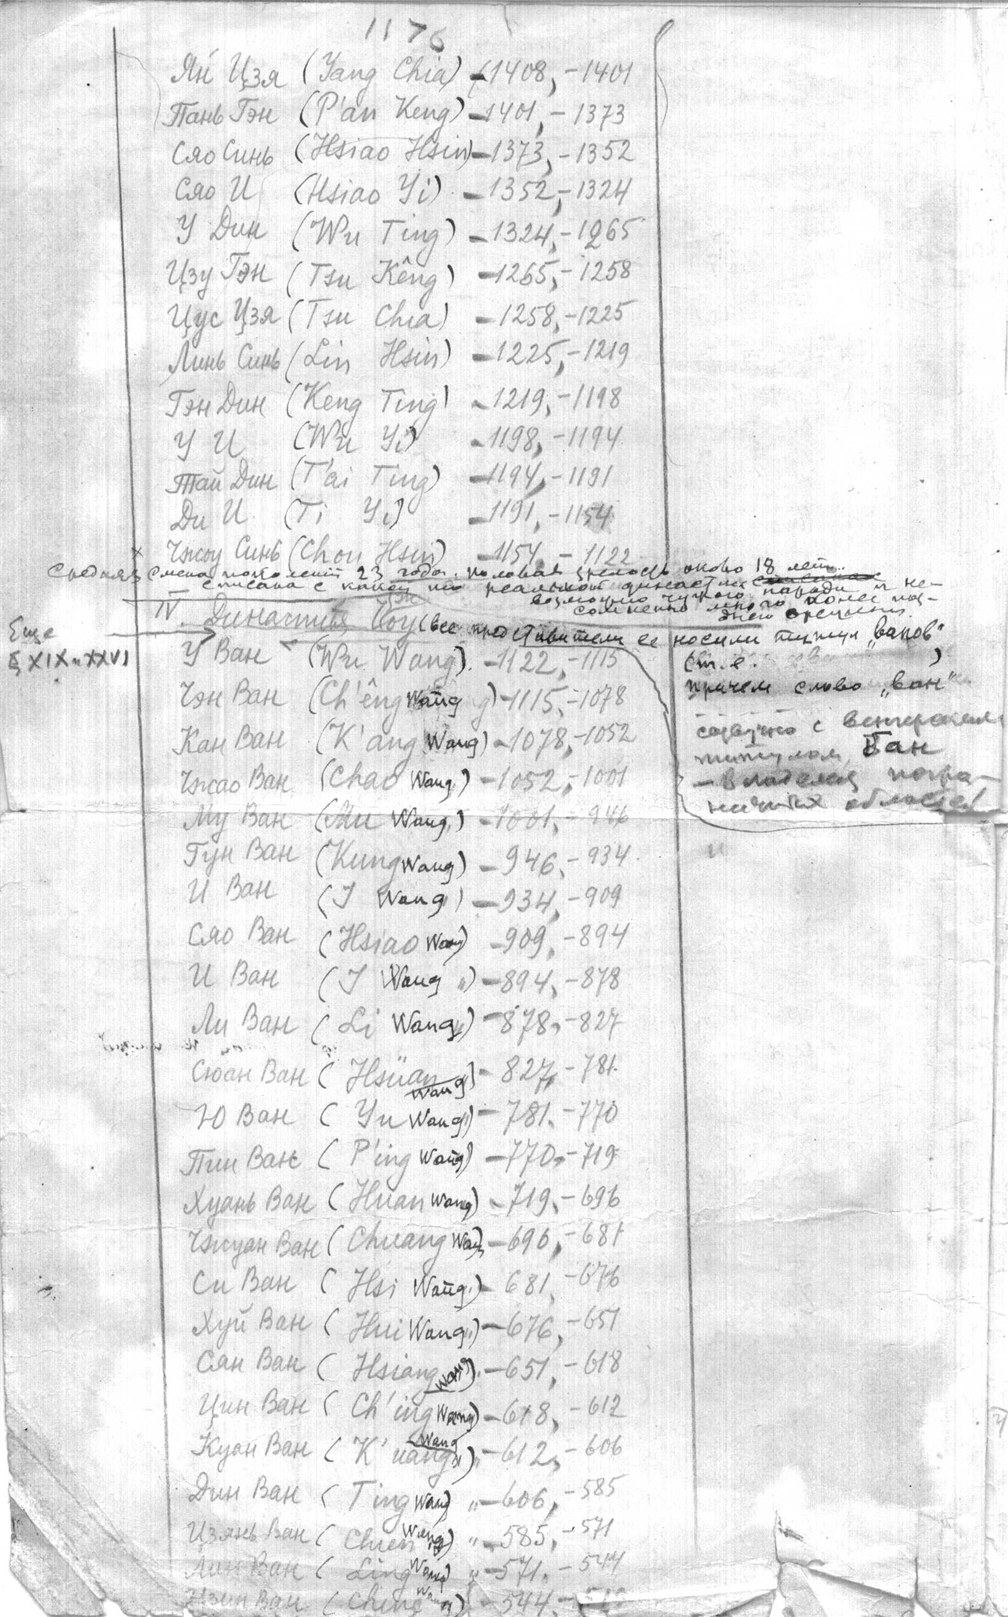 1176
Ян Цзя (Yang Chia) -(1408, -1401
Пань Гэн (P'an Keng) -1401, -1373
Сяо Синь (Hsiao Hsin) -1373, -1352
Сяо И (Hsiao Yi) -1352, -1324
У Дин (Wu Ting) -1324, -1265
Цзу Гэн (Tsu Kêng) -1265, -1258
Цус Цзя (Tsu Chia) -1258, -1225
Линь Синь (Lin Hsin) -1225, -1219
Гэн Дин (Keng Ting) -1219, -1198
У И (Wu Yi) -1198, -1194
Тай Дин (T'ai Ting) -1194, -1191
Ди И (Ti Yi) -1191, -1154
Чжоу Синь (Chou Hsin) -1154, -1122
Средняя смена поколений 23 года. половая зрелость около 18 лет.
списана с какой то реальной династии
возможно чужого народа и не-
сомненно много более поз-
днего времени
IV. Династия Чоу (все представители ее носили титул „ванов"
Еще
§ XIX и XXVI
(т. е. )
причем слово „ван"
созвучно с венгерским
титулом Бан
- владелец погра-
ничных областей
У Ван (Wu Wang). -1122, -1115
Чэн Ван (Ch'êng Wang) -1115, -1078
Кан Ван (K'ang Wang) -1078, -1052
Чжао Ван (Chao Wang) -1052, -1001
Му Ван (Mu Wang) -1001, -946
Гун Ван (Kung Wang) -946, -934
И Ван (I Wang) -934, -909
Сяо Ван (Hsiao Wang) -909, -894
И Ван (I Wang „) -894, -878
Ли Ван (Li Wang) -878, -827
Сюан Ван (Hsüan Wang) -827, -781
Ю Ван (Yu Wang) -781, -770
Пин Ван (P'ing Wang) -770, -719
Хуань Ван (Huan Wang) -719, -696
Чжуан Ван (Chuang Wang) -696, -681
Си Ван (Hsi Wang) -681, -676
Хуй Ван (Hui Wang) -676, -651
Сян Ван (Hsiang Wang) -651, -618
Цин Ван (Ch'ing Wang) -618, -612
Куан Ван (K'uang Wang) -612, -606
Дин Ван (Ting Wang) „ -606, -585
Цзянь Ван (Chien Wang) „ -585, -571
Лин Ван (Ling Wang) „ -571, -544
Цзин Ван (Ching Wang) -544,